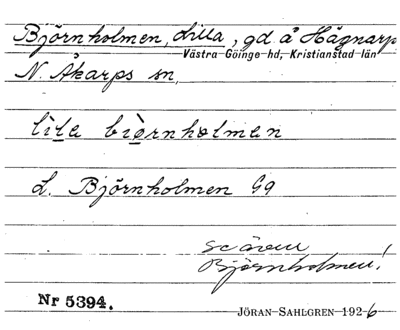 Björnholmen, Lilla, gd å Hägnarp
Västra Göinge hd, Kristianstad län
N. Åkarps sn,
lila biörnholmen
L. Björnholmen Gg
se även
Björnholmen!
Nr 5394.
JÖRAN SAHLGREN 1926